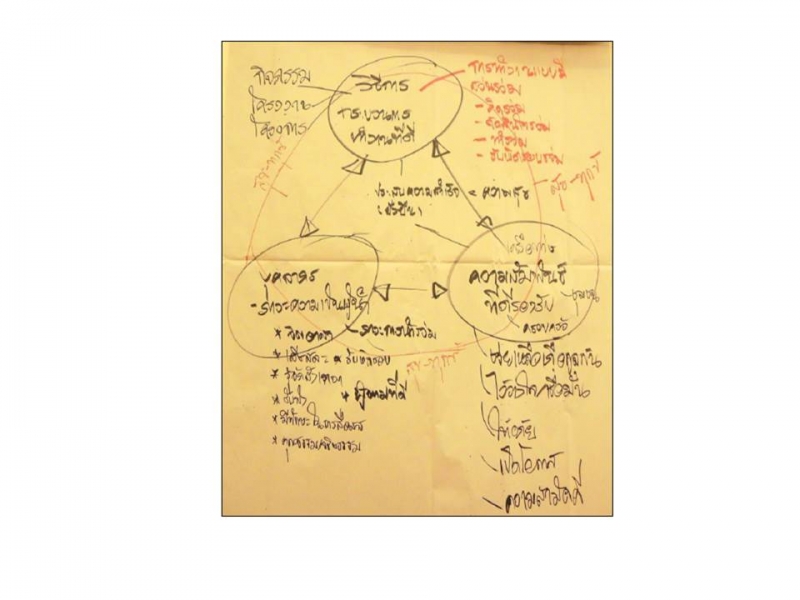 กิจกรรม
โครงงาน
โครงการ
วิธีการ
กระบวนการ
ทำงานที่ดี
การทำงานแบบมี
ส่วนร่วม
- คิดร่วม
- ตัดสินใจร่วม
- ทำร่วม
- รับผิดชอบร่วม
สุข-ทุกข์
ประสบความสำเร็จ = ความสุข
(ยั่งยืน)
บุคลากร
- ภาวะความเป็นผู้นำ
* จิตอาสา - ภาวะการนำร่วม
* เสียสละ * รับผิดชอบ
* ผู้ตามที่ดี
* คุณธรรมจริยธรรม
เครือข่าย
ความสัมพันธ์
ที่ดีต่อกัน
ชุมชน
ครอบครัว
ช่วยเหลือเกื้อกูลกัน
ไว้วางใจเชื่อมั่น
ให้อภัย
เปิดโอกาส
- ความสามัคคี
สุข-ทุกข์